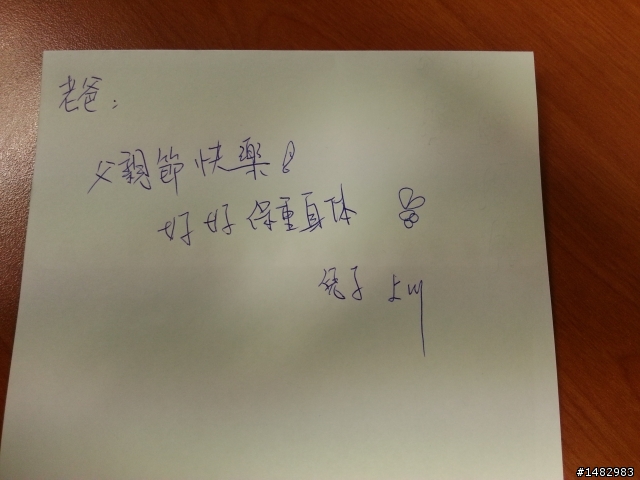 老爸：
父親節快樂！
好好保重身体
兔子 上
#1482983